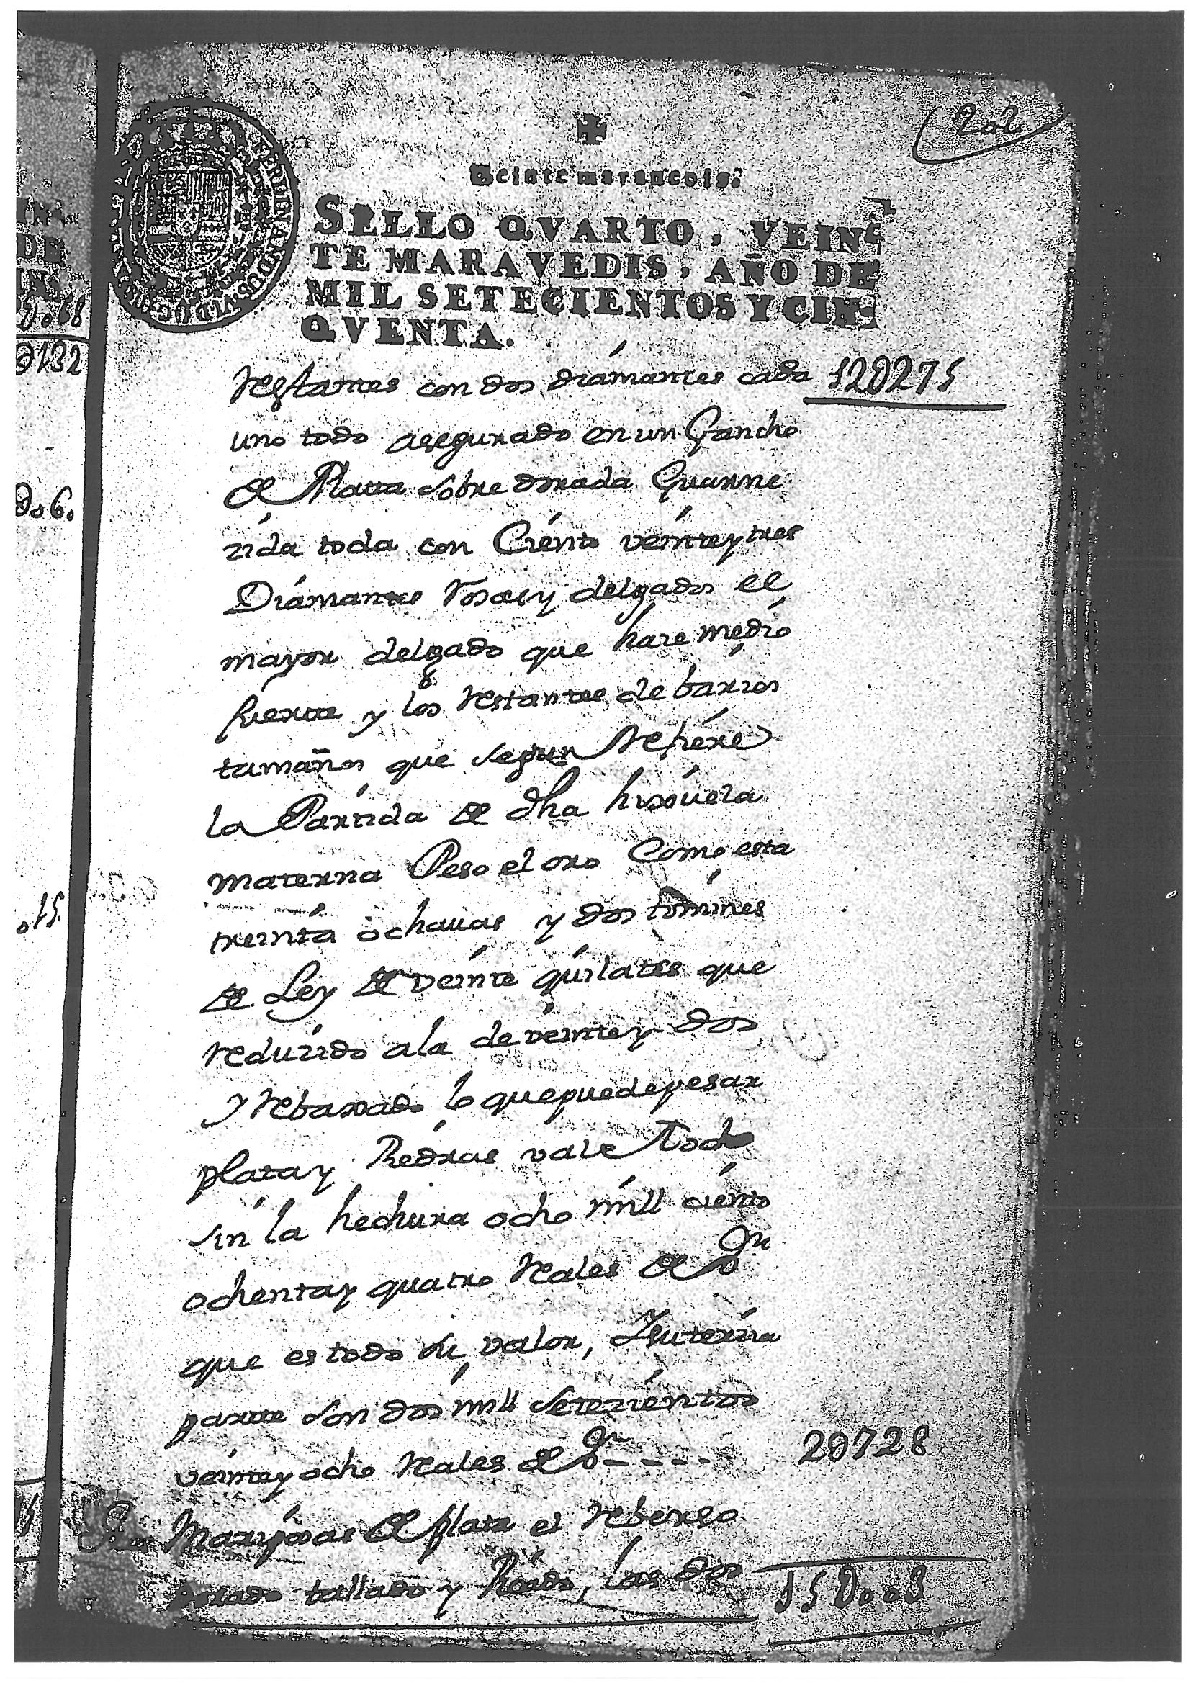 202
Veinte maravedis.
SELLO QVARTO, VEIN-
TE MARAVEDIS, AÑO DE
MIL SETECIENTOS Y CIN-
QVENTA.
restantes con dos diamantes cada 12U275
uno todo asegurado en un Gancho
de Platta sobre dorada Guarne
zida toda con Ciento veinte y tres
Diamantes rosas y delgados el
mayor delgado que haze medio
frente y los restantes de barios
tamaños que segun refiere
la Partida de dha hixuela
materna Peso el oro Como esta
treinta ochauas y dos tomines
de Ley de veinte quilates que
reduzido a la de veinte y dos
y rebaxado lo que puede pesar
plata y Piedras vale todo
sin la hechura ocho mill ciento
ochenta y quatro reales de Vn
que es todo su valor, Zuterzia
parte son dos mill setezientos
veinte y ocho reales de Vn ---- 2U728
Mariposas de plata el reberso
dorado tallado y las dos 15U003
Do68
9132
Do6.
o15